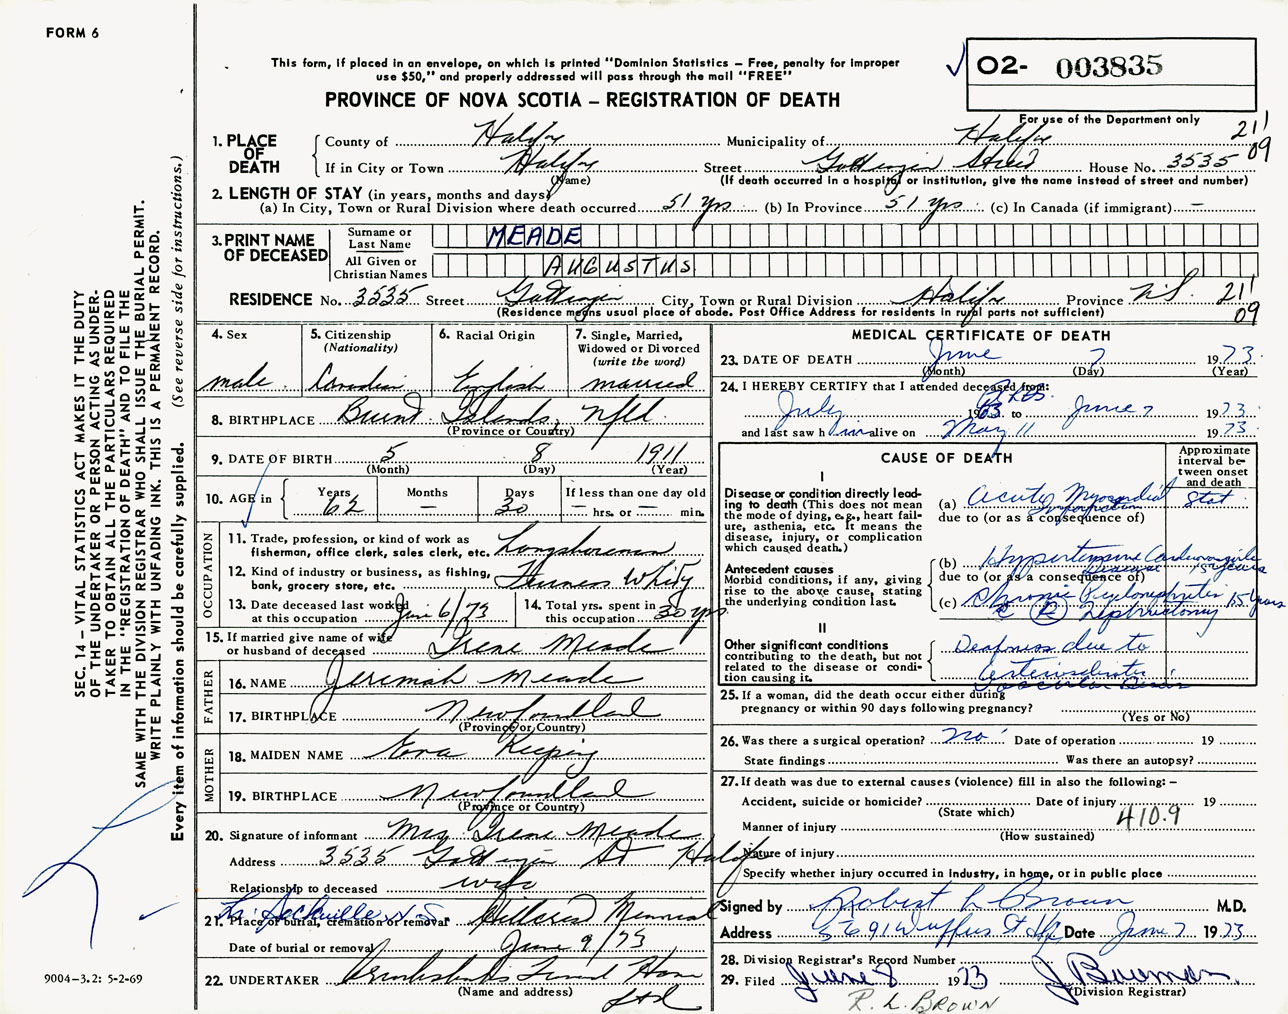 FORM 6
SEC. 14 – VITAL STATISTICS ACT MAKES IT THE DUTY
OF THE UNDERTAKER OR PERSON ACTING AS UNDER-
TAKER TO OBTAIN ALL THE PARTICULARS REQUIRED
IN THE "REGISTRATION OF DEATH" AND TO FILE THE
SAME WITH THE DIVISION REGISTRAR WHO SHALL ISSUE THE BURIAL PERMIT.
WRITE PLAINLY WITH UNFADING INK. THIS IS A PERMANENT RECORD.
Every item of information should be carefully supplied. (See reverse side for instructions.)
9004–3.2: 5-2-69
This form, if placed in an envelope, on which is printed "Dominion Statistics – Free, penalty for improper
use $50," and properly addressed will pass through the mail "FREE"
PROVINCE OF NOVA SCOTIA – REGISTRATION OF DEATH
02- 003835
For use of the Department only
211
09
1. PLACE OF DEATH
County of Halifax Municipality of Halifax
If in City or Town Halifax Street Gottingen Street House No. 3535
(Name) (If death occurred in a hospital or institution, give the name instead of street and number)
2. LENGTH OF STAY (in years, months and days)
(a) In City, Town or Rural Division where death occurred 51 yrs (b) In Province 51 yrs (c) In Canada (if immigrant) –
3. PRINT NAME OF DECEASED
Surname or Last Name MEADE
All Given or Christian Names AUGUSTUS
RESIDENCE No. 3535 Street Gottingen City, Town or Rural Division Halifax Province N.S. 211
(Residence means usual place of abode. Post Office Address for residents in rural parts not sufficient) 09
4. Sex
male
5. Citizenship (Nationality)
Canadian
6. Racial Origin
English
7. Single, Married, Widowed or Divorced (write the word)
married
8. BIRTHPLACE Burnt Islands, Nfld
(Province or Country)
9. DATE OF BIRTH 5 8 1911
(Month) (Day) (Year)
10. AGE in Years 62 Months – Days 30 If less than one day old – hrs. or – min.
OCCUPATION
11. Trade, profession, or kind of work as fisherman, office clerk, sales clerk, etc. Longshoreman
12. Kind of industry or business, as fishing, bank, grocery store, etc. Furness Withy
13. Date deceased last worked at this occupation Jun 6/73
14. Total yrs. spent in this occupation 30 yrs
15. If married give name of wife or husband of deceased Irene Meade
FATHER
16. NAME Jerimah Meade
17. BIRTHPLACE Newfoundland
(Province or Country)
MOTHER
18. MAIDEN NAME Eva Keeping
19. BIRTHPLACE Newfoundland
(Province or Country)
20. Signature of informant Mrs Irene Meade
Address 3535 Gottingen St Halifax
Relationship to deceased wife
21. Place of burial, cremation or removal Lr. Sackville N.S. Hillcrest Memorial
Date of burial or removal June 9/73
22. UNDERTAKER Cruikshanks Funeral Home Ltd
(Name and address)
MEDICAL CERTIFICATE OF DEATH
23. DATE OF DEATH June 7 1973
(Month) (Day) (Year)
24. I HEREBY CERTIFY that I attended deceased from:
July 1963 to June 7 1973
and last saw him alive on May 11 1973
CAUSE OF DEATH
Approximate interval between onset and death
I
Disease or condition directly lead-
ing to death (This does not mean
the mode of dying, e.g., heart fail-
ure, asthenia, etc. It means the
disease, injury, or complication
which caused death.)
(a) Acute Myocardial Infarction Stat
due to (or as a consequence of)
Antecedent causes
Morbid conditions, if any, giving
rise to the above cause, stating
the underlying condition last.
(b) Hypertensive Cardiovascular Disease 15 years
due to (or as a consequence of)
(c) Chronic Pyelonephritis 15 years
c R Nephrectomy
II
Other significant conditions
contributing to the death, but not
related to the disease or condi-
tion causing it.
Deafness due to
25. If a woman, did the death occur either during
pregnancy or within 90 days following pregnancy?
(Yes or No)
26. Was there a surgical operation? no Date of operation 19
State findings Was there an autopsy?
27. If death was due to external causes (violence) fill in also the following: –
Accident, suicide or homicide? Date of injury 19
(State which)
Manner of injury 410.9
(How sustained)
Nature of injury
Specify whether injury occurred in industry, in home, or in public place
Signed by Robert L Brown M.D.
Address 5691 Duffus St Hfx Date June 7 1973
28. Division Registrar's Record Number
29. Filed June 8 1973 J Bowman
(Division Registrar)
R. L. BROWN